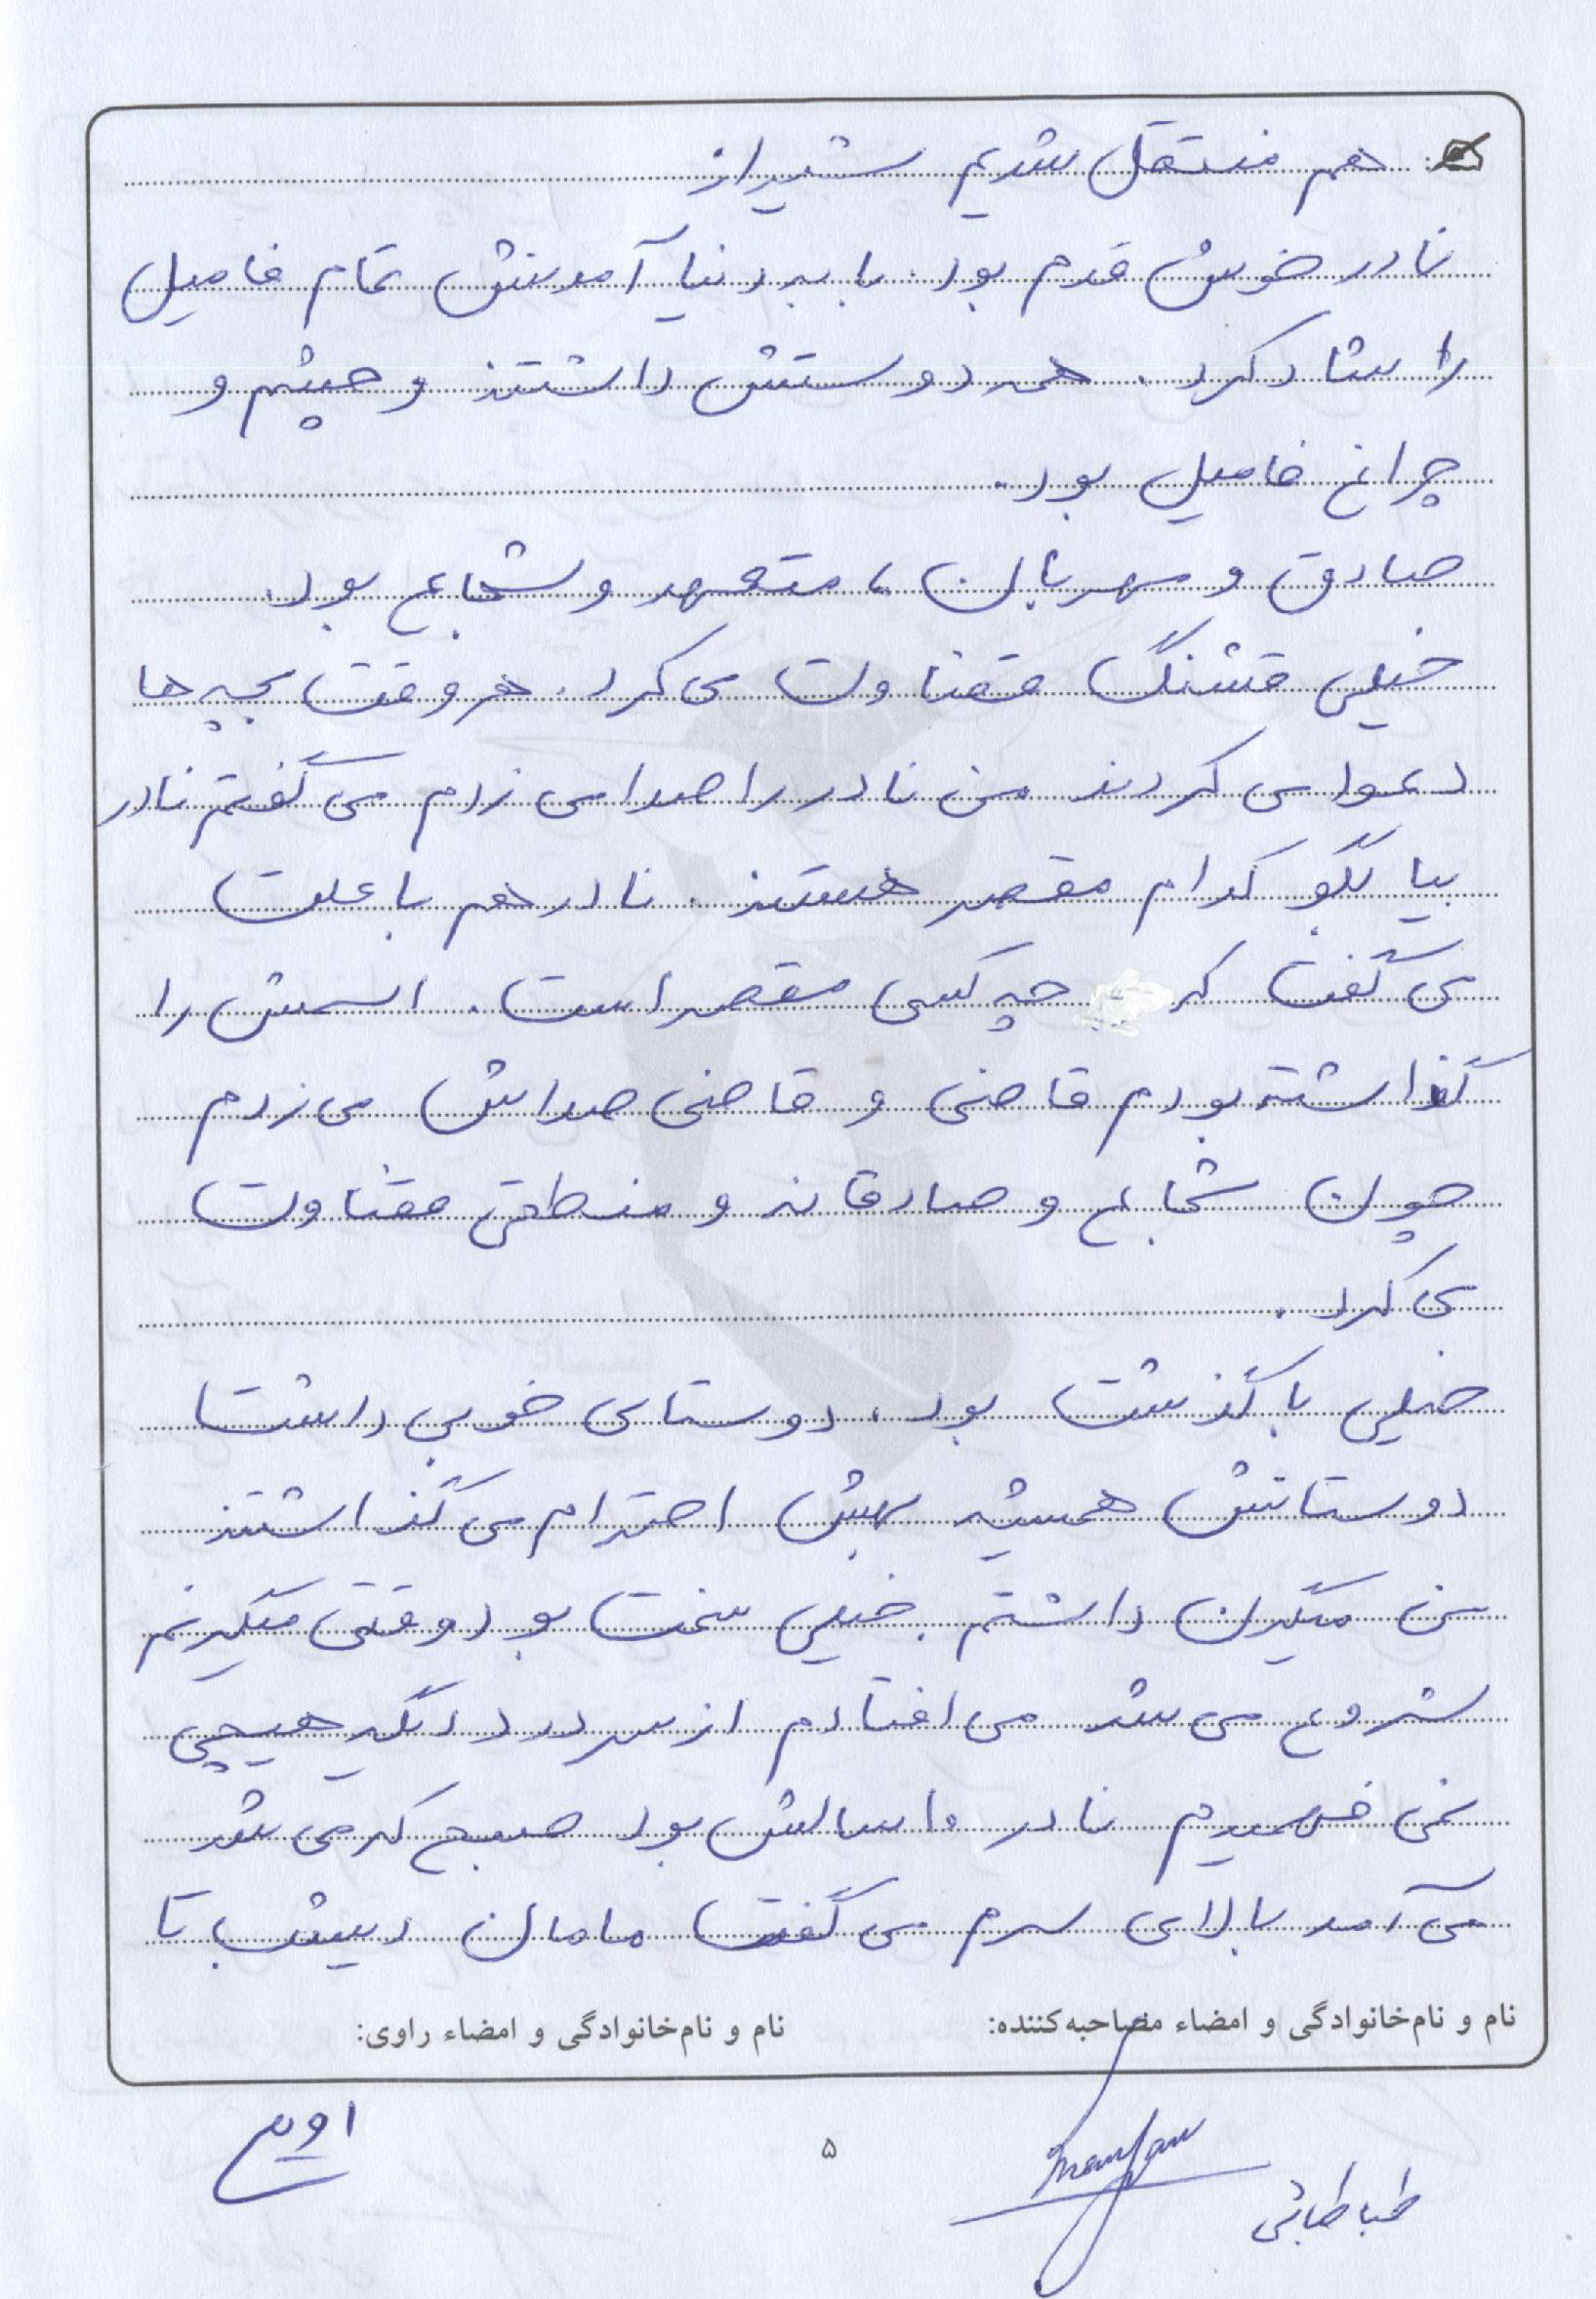 هم منتقل شدیم شیراز
نادر خوش قدم بود. با به دنیا آمدنش تمام فامیل
را شاد کرد. همه دوستش داشتند و چشم و
چراغ فامیل بود.
صادق و مهربان، متعهد و شجاع بود.
خیلی قشنگ قضاوت می کرد. هر وقت بچه ها
دعوا می کردند من نادر را صدا می زدم می گفتم نادر
بیا بگو کدام مقصر هستند. نادر هم با علت
می گفت که چه کسی مقصر است. اسمش را
گذاشته بودم قاضی و قاضی صداش می زدم
چون شجاع و صادقانه و منطقی قضاوت
می کرد.
خیلی با گذشت بود، دوستای خوبی داشت
دوستانش همیشه بهش احترام می گذاشتند
من میگرن داشتم. خیلی سخت بود وقتی میگرنم
شروع می شد می افتادم از سردرد دیگه هیچی
نمی فهمیدم نادر ۱۰ سالش بود صبح که می شد
می آمد بالای سرم می گفت مامان دیشب تا
نام و نام‌خانوادگی و امضاء مصاحبه‌کننده: نام و نام‌خانوادگی و امضاء راوی:
۵
طباطبائی